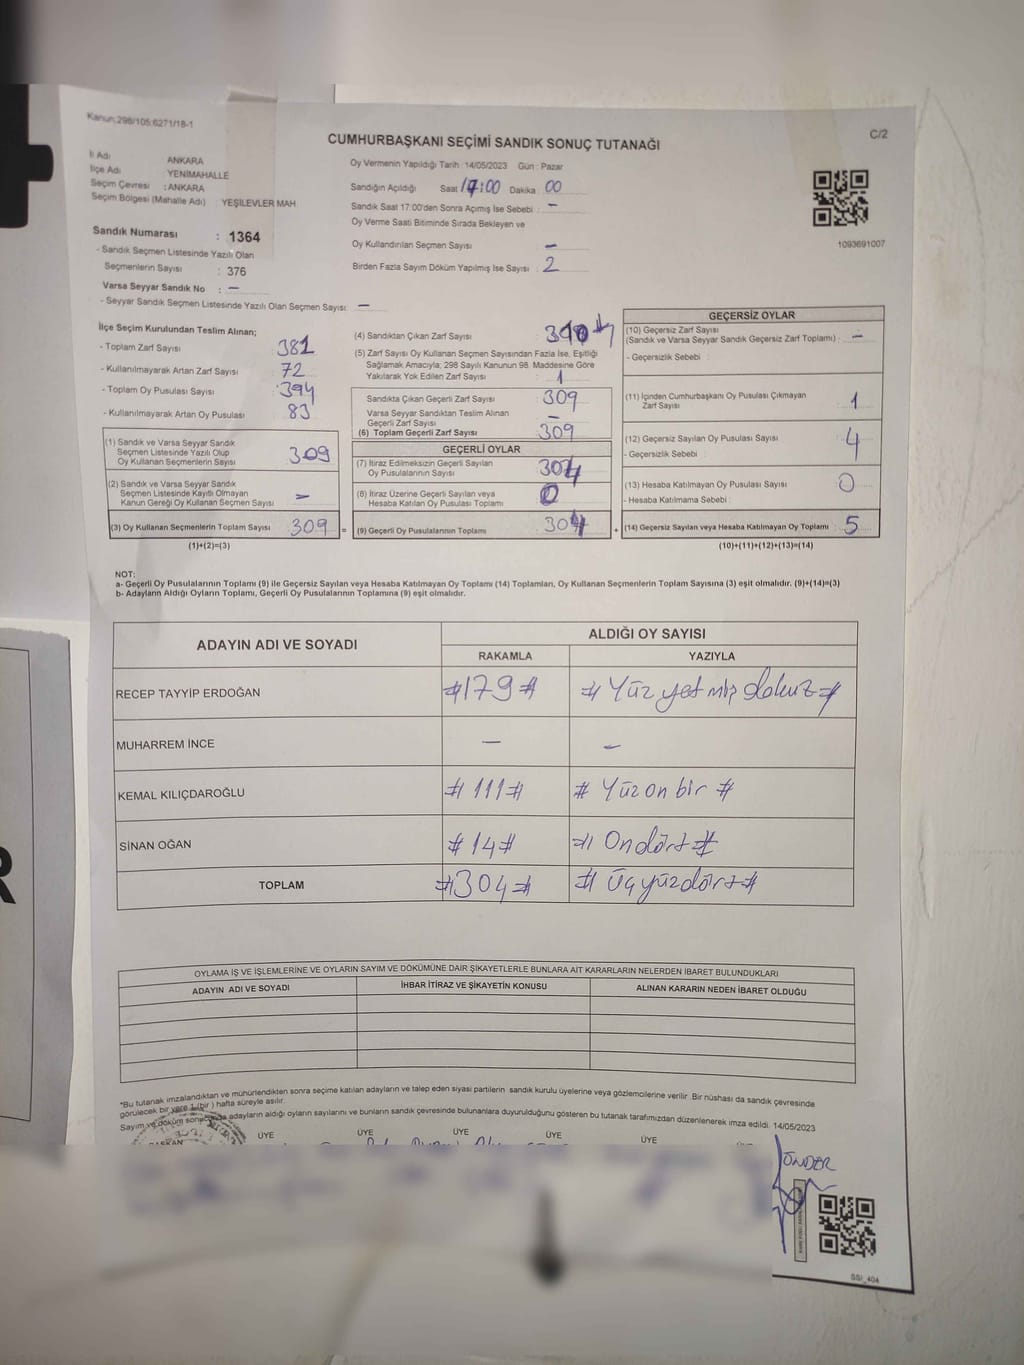 Kanun:298/105:6271/18-1
C/2
CUMHURBAŞKANI SEÇİMİ SANDIK SONUÇ TUTANAĞI
İl Adı ANKARA
İlçe Adı YENİMAHALLE
Seçim Çevresi : ANKARA
Seçim Bölgesi (Mahalle Adı) : YEŞİLEVLER MAH
Oy Vermenin Yapıldığı Tarih :14/05/2023 Gün : Pazar
Sandığın Açıldığı Saat 17:00 Dakika 00
Sandık Saat 17:00'den Sonra Açımış İse Sebebi : -
Oy Verme Saati Bitiminde Sırada Bekleyen ve
Oy Kullandırılan Seçmen Sayısı -
Birden Fazla Sayım Döküm Yapılmış İse Sayısı : 2
1093691007
Sandık Numarası : 1364
- Sandık Seçmen Listesinde Yazılı Olan
Seçmenlerin Sayısı : 376
Varsa Seyyar Sandık No : -
- Seyyar Sandık Seçmen Listesinde Yazılı Olan Seçmen Sayısı: -
İlçe Seçim Kurulundan Teslim Alınan;
- Toplam Zarf Sayısı : 381
- Kullanılmayarak Artan Zarf Sayısı : 72
- Toplam Oy Pusulası Sayısı : 394
- Kullanılmayarak Artan Oy Pusulası : 83
(1) Sandık ve Varsa Seyyar Sandık
Seçmen Listesinde Yazılı Olup
Oy Kullanan Seçmenlerin Sayısı 309
(2) Sandık ve Varsa Seyyar Sandık
Seçmen Listesinde Kayıtlı Olmayan
Kanun Gereği Oy Kullanan Seçmen Sayısı -
(3) Oy Kullanan Seçmenlerin Toplam Sayısı 309 =
(1)+(2)=(3)
(4) Sandıktan Çıkan Zarf Sayısı
(5) Zarf Sayısı Oy Kullanan Seçmen Sayısından Fazla İse, Eşitliği
Sağlamak Amacıyla, 298 Sayılı Kanunun 98. Maddesine Göre
Yakılarak Yok Edilen Zarf Sayısı 1
Sandıkta Çıkan Geçerli Zarf Sayısı 309
Varsa Seyyar Sandıktan Teslim Alınan
Geçerli Zarf Sayısı -
(6) Toplam Geçerli Zarf Sayısı 309
GEÇERLİ OYLAR
(7) İtiraz Edilmeksizin Geçerli Sayılan
Oy Pusulalarının Sayısı 304
(8) İtiraz Üzerine Geçerli Sayılan veya
Hesaba Katılan Oy Pusulaları Toplamı 0
(9) Geçerli Oy Pusulalarının Toplamı 304 +
GEÇERSİZ OYLAR
(10) Geçersiz Zarf Sayısı
(Sandık ve Varsa Seyyar Sandık Geçersiz Zarf Toplamı) : -
- Geçersizlik Sebebi :
(11) İçinden Cumhurbaşkanı Oy Pusulası Çıkmayan
Zarf Sayısı : 1
(12) Geçersiz Sayılan Oy Pusulası Sayısı : 4
- Geçersizlik Sebebi :
(13) Hesaba Katılmayan Oy Pusulası Sayısı : 0
- Hesaba Katılmama Sebebi :
(14) Geçersiz Sayılan veya Hesaba Katılmayan Oy Toplamı : 5
(10)+(11)+(12)+(13)=(14)
NOT:
a- Geçerli Oy Pusulalarının Toplamı (9) ile Geçersiz Sayılan veya Hesaba Katılmayan Oy Toplamı (14) Toplamları, Oy Kullanan Seçmenlerin Toplam Sayısına (3) eşit olmalıdır. (9)+(14)=(3)
b- Adayların Aldığı Oyların Toplamı, Geçerli Oy Pusulalarının Toplamına (9) eşit olmalıdır.
ADAYIN ADI VE SOYADI ALDIĞI OY SAYISI
RAKAMLA YAZIYLA
RECEP TAYYİP ERDOĞAN #179# # Yüz yetmiş dokuz #
MUHARREM İNCE - -
KEMAL KILIÇDAROĞLU #111# # Yüz on bir #
SİNAN OĞAN #14# # On dört #
TOPLAM #304# # Üç yüz dört #
OYLAMA İŞ VE İŞLEMLERİNE VE OYLARIN SAYIM VE DÖKÜMÜNE DAİR ŞİKAYETLERLE BUNLARA AİT KARARLARIN NELERDEN İBARET BULUNDUKLARI
ADAYIN ADI VE SOYADI İHBAR İTİRAZ VE ŞİKAYETİN KONUSU ALINAN KARARIN NEDEN İBARET OLDUĞU
"Bu tutanak imzalandıktan ve mühürlendikten sonra seçime katılan adayların ve talep eden siyasi partilerin sandık kurulu üyelerine veya gözlemcilerine verilir .Bir nüshası da sandık çevresinde
görülecek bir yere 1 (bir ) hafta süreyle asılır.
Sayım ve döküm adayların aldığı oyların sayılarını ve bunların sandık çevresinde bulunanlara duyurulduğunu gösteren bu tutanak tarafımızdan düzenlenerek imza edildi. 14/05/2023
ÜYE ÜYE ÜYE ÜYE ÜYE
ÖNDER
SSI_404